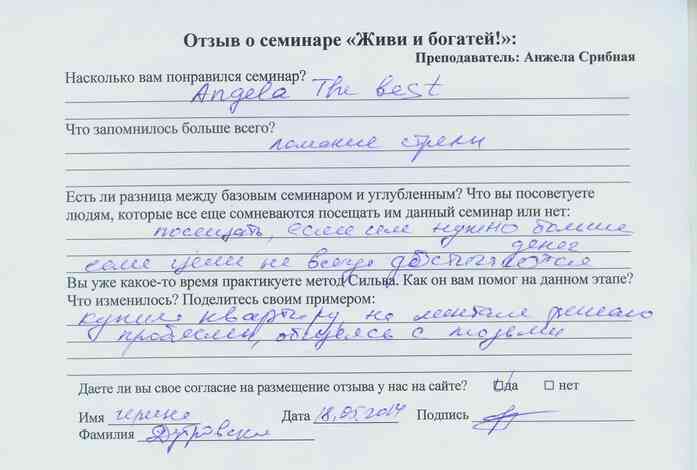 Отзыв о семинаре «Живи и богатей!»:
Преподаватель: Анжела Срибная
Насколько вам понравился семинар?
Angela The best
Что запомнилось больше всего?
ломание стрелы
Есть ли разница между базовым семинаром и углубленным? Что вы посоветуете
людям, которые все еще сомневаются посещать им данный семинар или нет:
посещать, если им нужно больше
денег
если цели не всегда достигаются
Вы уже какое-то время практикуете метод Сильва. Как он вам помог на данном этапе?
Что изменилось? Поделитесь своим примером:
купила квартиру, на ментале решаю
проблемы, общаясь с людьми
Даете ли вы свое согласие на размещение отзыва у нас на сайте? да нет
Имя Ирина Дата 18.05.2014 Подпись
Фамилия